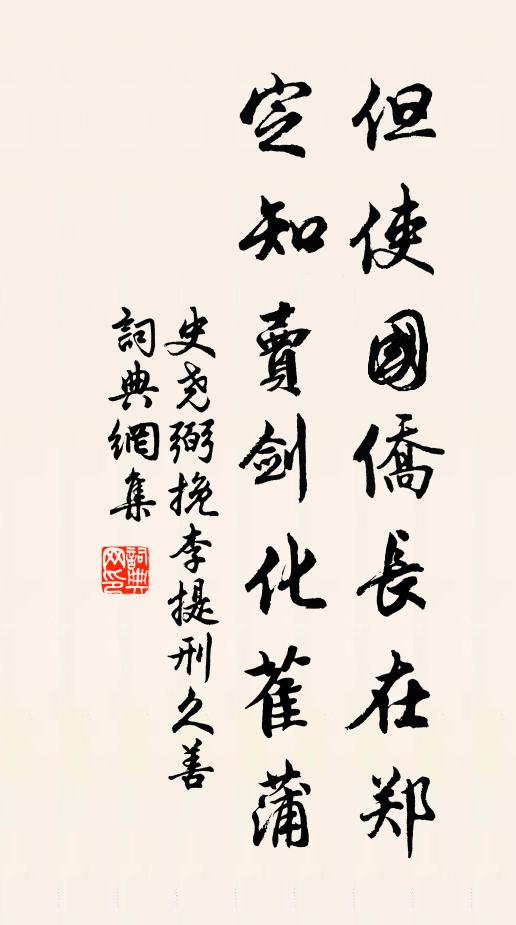 但使國僑長在郑
定知賣劍化萑蒲
史尧弼挽李提刑久善
詞典網集
詞典网印